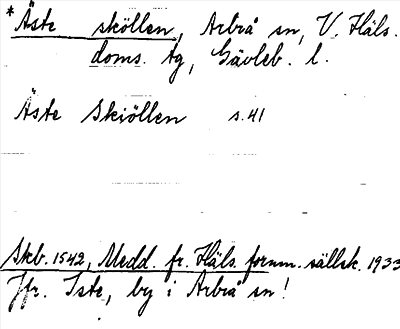 * Äste sköllen, Arbrå sn, V. Häls.
doms. tg, Gävleb. l.
Äste Skiöllen s. 41
Skb. 1542, Medd. fr. Häls. fornm. sällsk. 1933
Jfr. Iste, by i Arbrå sn!